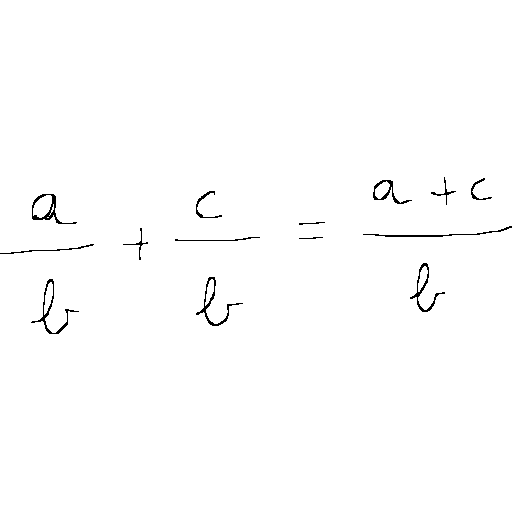 a/b + c/b = (a + c)/b